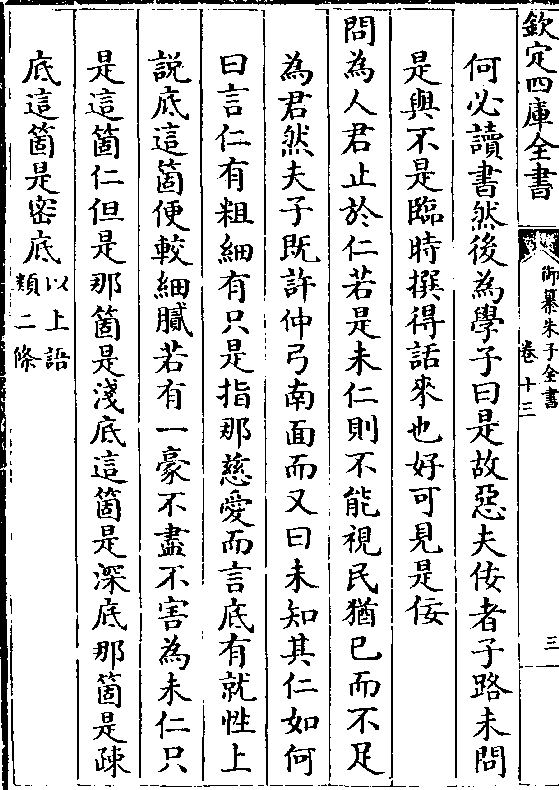 欽定四庫全書
御纂朱子全書
卷十三
三
何必讀書然後為學子曰是故惡夫佞者子路未問
是與不是臨時撰得話來也好可見是佞
問為人君止於仁若是未仁則不能視民猶已而不足
為君然夫子既許仲弓南面而又曰未知其仁如何
曰言仁有粗細有只是指那慈愛而言底有就性上
說底這箇便較細膩若有一豪不盡不害為未仁只
是這箇仁但是那箇是淺底這箇是深底那箇是疎
底這箇是密底
以上語
類二條